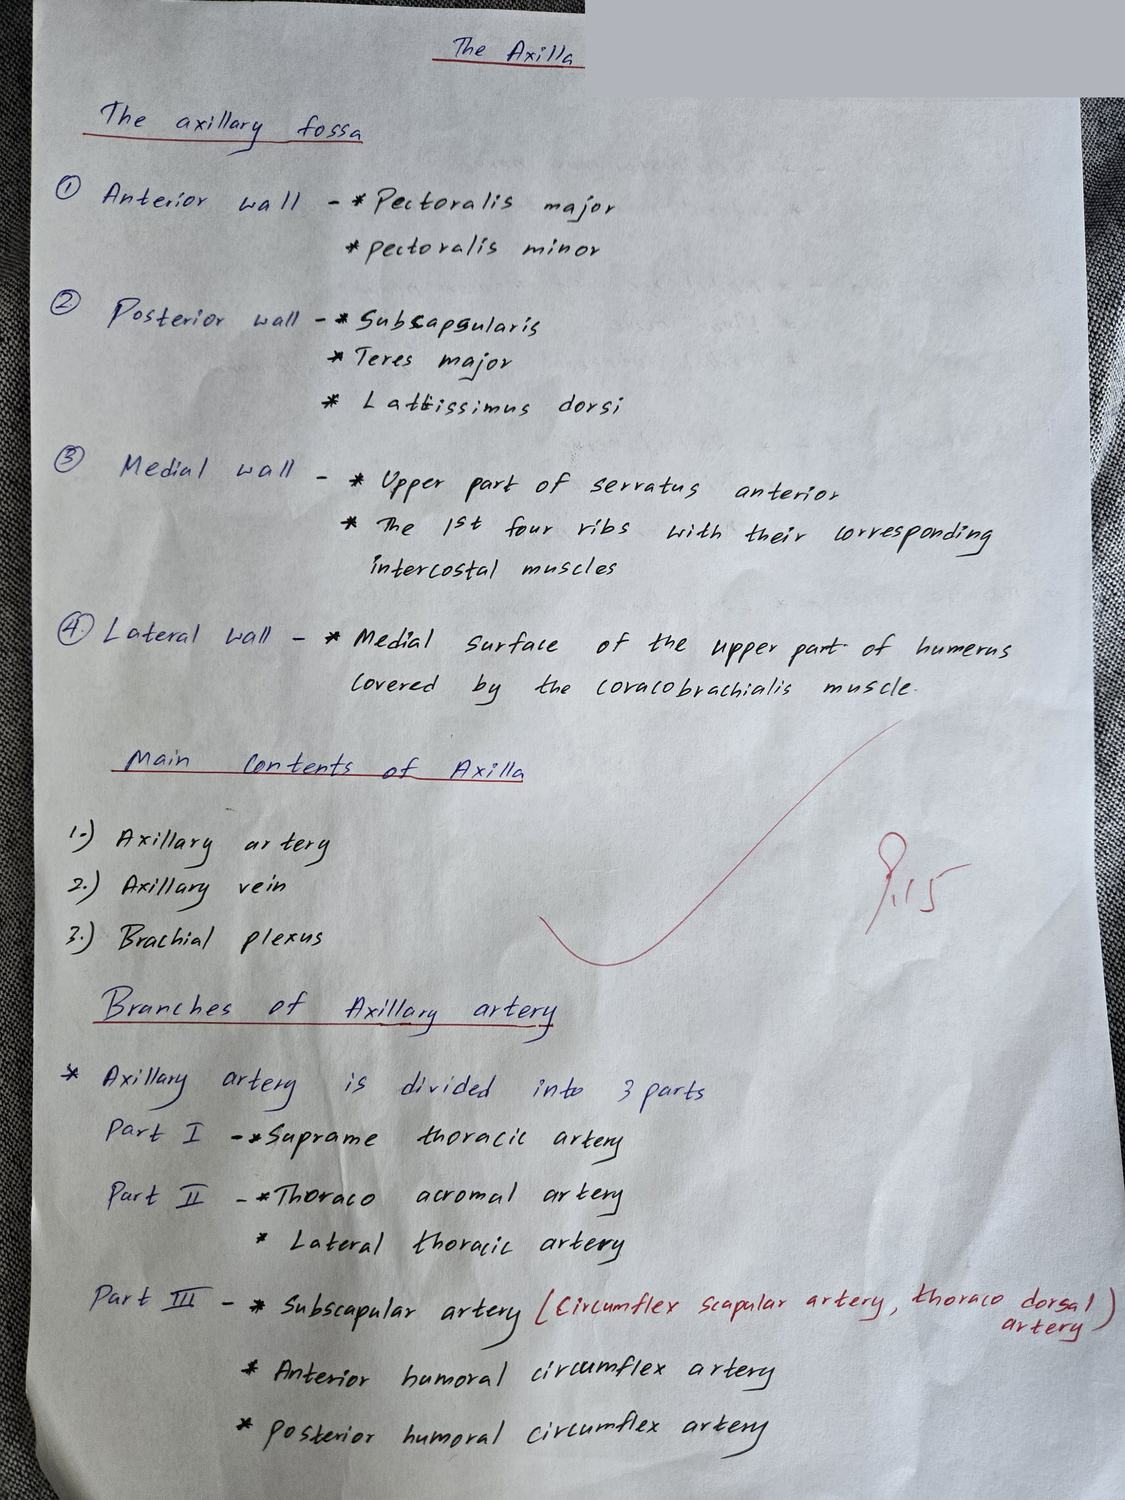 The Axilla
The axillary fossa
① Anterior wall - * Pectoralis major
* pectoralis minor
② Posterior wall - * Subscapsularis
* Teres major
* Lattissimus dorsi
③ Medial wall - * Upper part of serratus anterior
* The 1st four ribs with their corresponding
intercostal muscles
④ Lateral wall - * Medial surface of the upper part of humerus
covered by the coracobrachialis muscle.
Main contents of Axilla
1.) Axillary artery
2.) Axillary vein
3.) Brachial plexus
Branches of Axillary artery
* Axillary artery is divided into 3 parts
Part I - * Suprame thoracic artery
Part II - * Thoraco acromal artery
* Lateral thoracic artery
Part III - * Subscapular artery (Circumflex scapular artery, thoraco dorsal
artery)
* Anterior humoral circumflex artery
* Posterior humoral circumflex artery